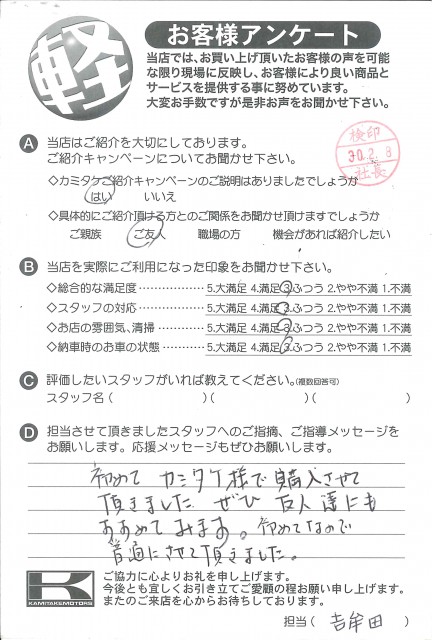 軽
お客様アンケート
当店では、お買い上げ頂いたお客様の声を可能
な限り現場に反映し、お客様により良い商品と
サービスを提供する事に努めています。
大変お手数ですが是非お声をお聞かせ下さい。
検印
30.2.8
社長
A 当店はご紹介を大切にしております。
ご紹介キャンペーンについてお聞かせ下さい。
◇カミタケご紹介キャンペーンのご説明はありましたでしょうか
はい いいえ
◇具体的にご紹介頂ける方とのご関係をお聞かせ頂けますでしょうか
ご親族 ご友人 職場の方 機会があれば紹介したい
B 当店を実際にご利用になった印象をお聞かせ下さい。
◇総合的な満足度 ……………… 5.大満足 4.満足 3.ふつう 2.やや不満 1.不満
◇スタッフの対応 ……………… 5.大満足 4.満足 3.ふつう 2.やや不満 1.不満
◇お店の雰囲気、清掃 ………… 5.大満足 4.満足 3.ふつう 2.やや不満 1.不満
◇納車時のお車の状態 ………… 5.大満足 4.満足 3.ふつう 2.やや不満 1.不満
C 評価したいスタッフがいれば教えてください。(複数回答可)
スタッフ名 ( )( )( )
D 担当させて頂きましたスタッフへのご指摘、ご指導メッセージを
お願いします。応援メッセージもぜひお願いします。
初めて カミタケ様で購入させて
頂きました ぜひ 友人達にも
おすすめてみます。初めてなので
普通にさせて頂きました。
K
KAMITAKE MOTORS
ご協力に心よりお礼を申し上げます。
今後とも宜しくお引き立てご愛顧の程お願い申し上げます。
またのご来店を心からお待ちしております。
担当 ( 吉牟田 )